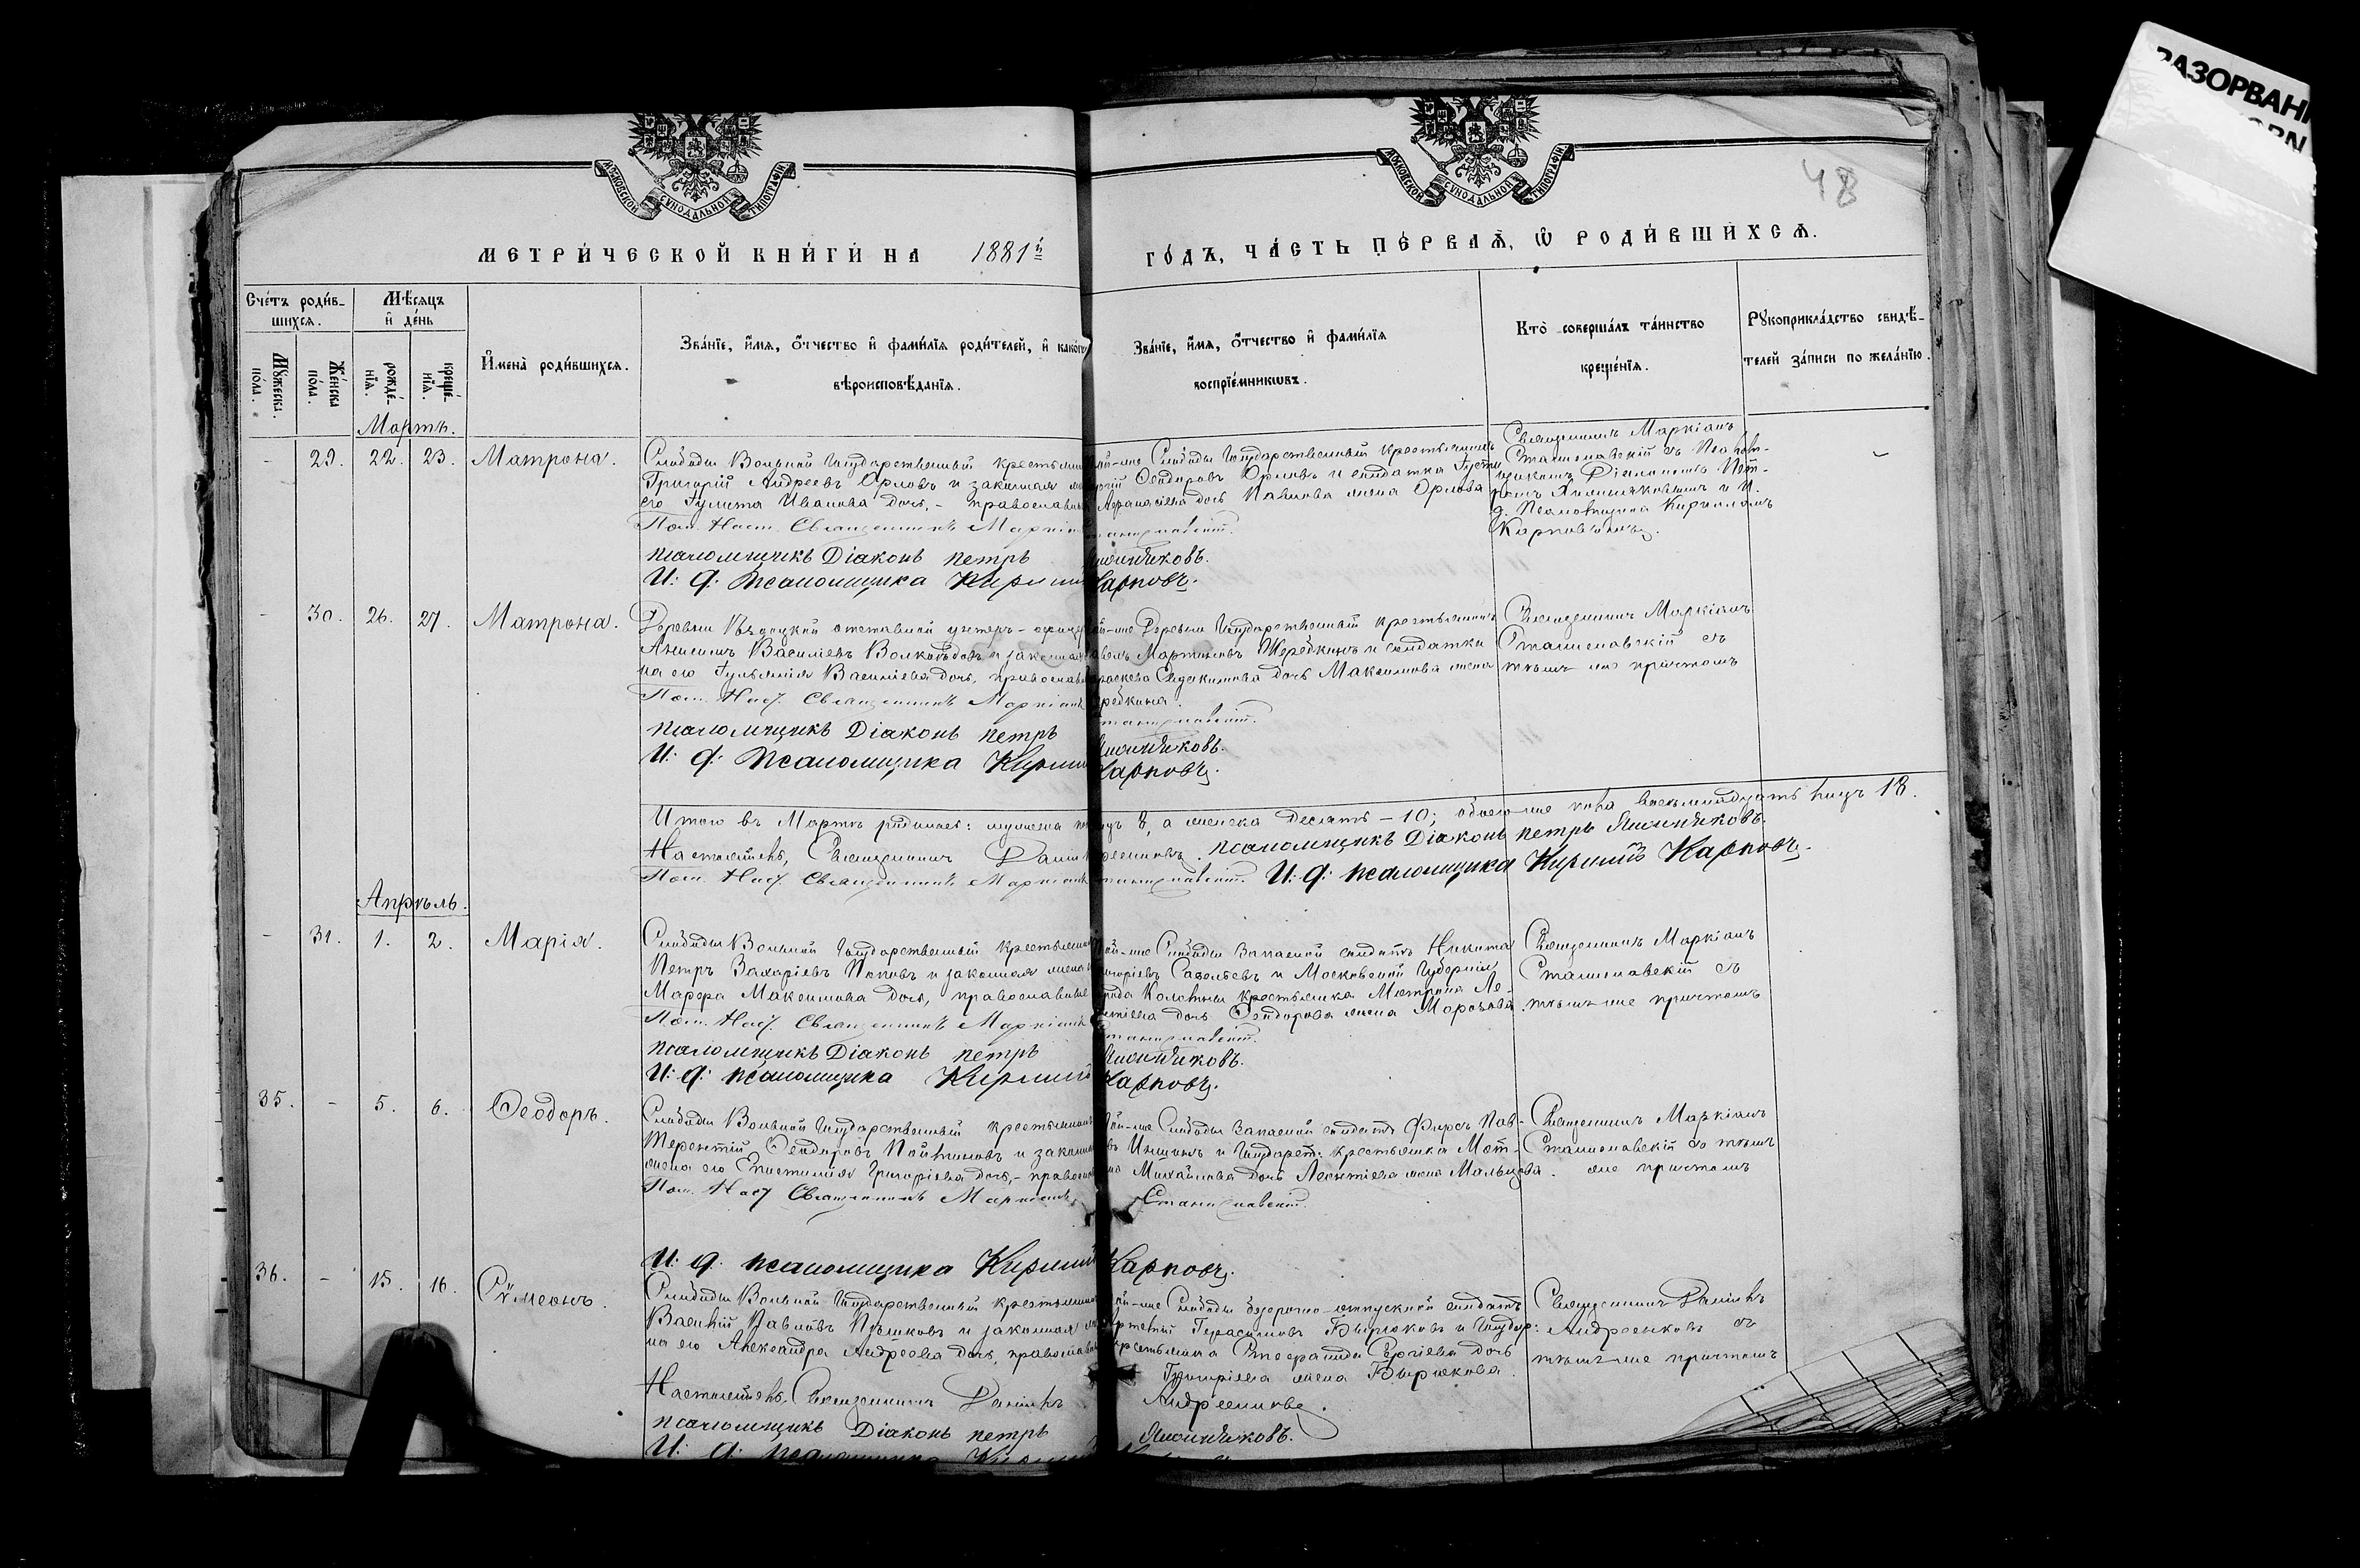 РАЗОРВАН
МОСКОВСКОЙ СѴНОДАЛЬНОЙ ТИПОГРАФІИ
МОСКОВСКОЙ СѴНОДАЛЬНОЙ ТИПОГРАФІИ
48
МЕТРИ́ЧЕСКОЙ КНИ́ГИ НА 1881й ГО́ДЪ, ЧА́СТЬ ПЕ́РВАѦ, Ѡ РОДИ́ВШИХСѦ.
Сче́тъ роди́в-
шихсѧ.
Мѣ́сѧцъ
и де́нь
Мꙋ́жеска по́ла.
Же́нска по́ла.
рожде́-нїѧ.
креще́-нїѧ.
И҆мена̀ роди́вшихсѧ.
Зва́нїе, и҆́мѧ, ѻ҆́тчество и҆ фами́лїѧ роди́телей, и҆ како́гѡ
вѣроисповѣ́данїѧ.
Зва́нїе, и҆́мѧ, ѻ҆́тчество и҆ фами́лїѧ
воспрїе́мникѡвъ.
Кто̀ соверша́лъ та́инство
креще́нїѧ.
Рꙋкоприкла́дство свидѣ́-
телей за́писи по жела́нїю.
Мартъ.
- 29. 22. 23. Матрона.
Слободы Вольной Государственный крестьянин
Григорій Андреевъ Орловъ и законная
его Іулита Иванова дочь, - православн
Пом. Наст. Священникъ Маркіанъ
псаломщикъ Діаконъ петръ
И: д: псаломщика Кирилл
той-же Слободы Государственный крестьянинъ
Ѳеодоровъ Орловъ и солдатка
Афанасіева дочь Павлова жена Орлова
Карповъ.
Священникъ Маркіанъ
Станиславскій съ Псалом-
щикомъ Діакономъ Пет-
ромъ и И.
д. Псаломщика Кириломъ
Карповымъ.
- 30. 26. 27. Матрона.
Деревни отставной унтеръ-офицеръ
Анисимъ Василіевъ и законная
на его Іуліанія Василіева дочь, православн
Пом. Наст. Священникъ Маркіанъ
псаломщикъ Діаконъ петръ
И: д: Псаломщика Кирилл
той-же Деревни Государственный крестьянинъ
Мартиновъ Жеребкинъ и солдатка
Евдокимова дочь Максимова жена
Карповъ.
Священникъ Маркіанъ
Станиславскій съ
тѣмъ же причтомъ
Итого въ Мартѣ родилось: мужеска 8, а женска десять - 10; обоего-же пола восьмнадцать лицъ 18.
Настоятель, Священникъ Даніилъ Андреенковъ. псаломщикъ Діаконъ петръ
Пом. Наст. Священникъ Маркіанъ Станиславскій. И: д: псаломщика Кириллъ Карповъ.
Апрѣль.
- 31. 1. 2. Марія.
Слободы Вольной Государственный крестьянин
Петръ Захаріевъ Поповъ и законная жена
Марфа Максимова дочь, православные
Пом. Наст. Священникъ Маркіанъ
псаломщикъ Діаконъ петръ
И: д: псаломщика Кирилл
той-же Слободы запасной солдатъ Никита
Григоріевъ Савельевъ и Московской Губерніи
города Коломны крестьянка Матрона Ле-
онтіева дочь Ѳеодорова жена Морозова.
Станиславскій.
Карповъ.
Священникъ Маркіанъ
Станиславскій съ
тѣмъ-же причтомъ
35. - 5. 6. Ѳеодоръ.
Слободы Вольной Государственный крестьянинъ
Терентій Ѳеодоровъ и законная
жена его Григоріева дочь, - правосл
Пом. Наст. Священникъ Маркіанъ
И: д: псаломщика Кирилл
той-же Слободы запасной солдатъ Фирсъ Пав-
въ и Государст: крестьянка Мат-
на Михайлова дочь Леонтіева жена Мальцова.
Станиславскій.
Карповъ.
Священникъ Маркіанъ
Станиславскій съ тѣмъ
же причтомъ
36. - 15. 16. Сѵмеонъ.
Слободы Вольной Государственный крестьянин
Василій Павловъ Пѣшковъ и законная
на его Александра Андреева дочь, православн
Настоятель, Священникъ Даніилъ
псаломщикъ Діаконъ петръ
И: д: псаломщика Кирилл
той-же Слободы безсрочно-отпускной солдатъ
Герасимовъ Бирюковъ и Государ:
крестьянка Стефанида Сергіева дочь
Григоріева жена Бирюкова.
Андреенковъ.
Священникъ Даніилъ
Андреенковъ съ
тѣмъ-же причтомъ